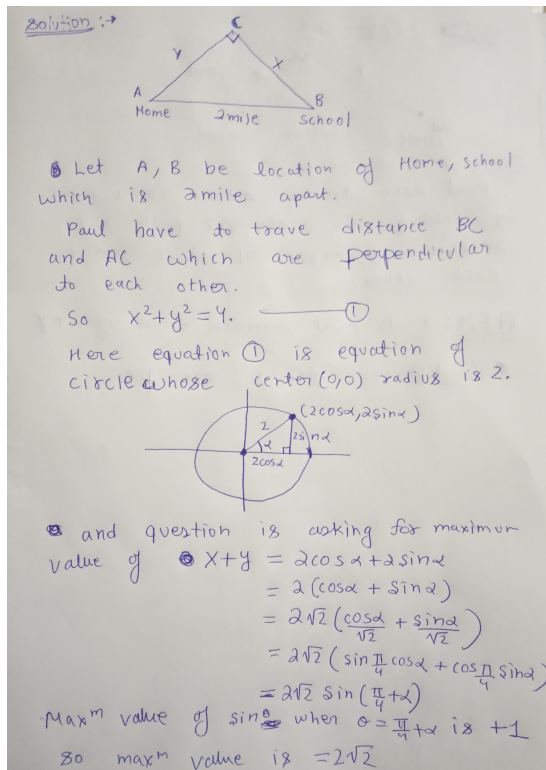 Solution :→
C
y
x
A
B
Home
2mile
School
Let A, B be location of Home, school
which is 2mile apart.
Paul have to trave distance BC
and AC which are perpendicular
to each other.
So x²+y²=4. ①
Here equation ① is equation of
circle whose center (0,0) radius is 2.
(2cosα, 2sinα)
2
α
2sinα
2cosα
and question is asking for maximum
value of x+y = 2cosα+2sinα
= 2(cosα + sinα)
= 2√2 (cosα/√2 + sinα/√2)
= 2√2 (sin π/4 cosα + cos π/4 sinα)
= 2√2 sin(π/4+α)
Maxᵐ value of sinθ when θ=π/4+α is +1
so maxᵐ value is =2√2